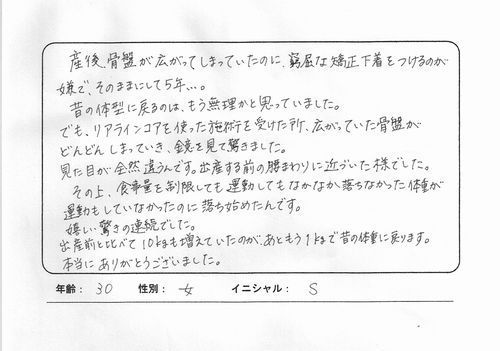 産後、骨盤が広がってしまっていたのに、窮屈な矯正下着をつけるのが
嫌で、そのままにして5年…。
昔の体型に戻るのは、もう無理かと思っていました。
でも、リアラインコアを使った施術を受けた所、広がっていた骨盤が
どんどんしまっていき、鏡を見て驚きました。
見た目が全然違うんです。出産する前の腰まわりに近づいた様でした。
その上、食事量を制限しても運動してもなかなか落ちなかった体重が
運動もしていなかったのに落ち始めたんです。
嬉しい驚きの連続でした。
出産前と比べて10kgも増えていたのが、あともう1kgで昔の体重に戻ります。
本当にありがとうございました。
年齢: 30 性別: 女 イニシャル: S